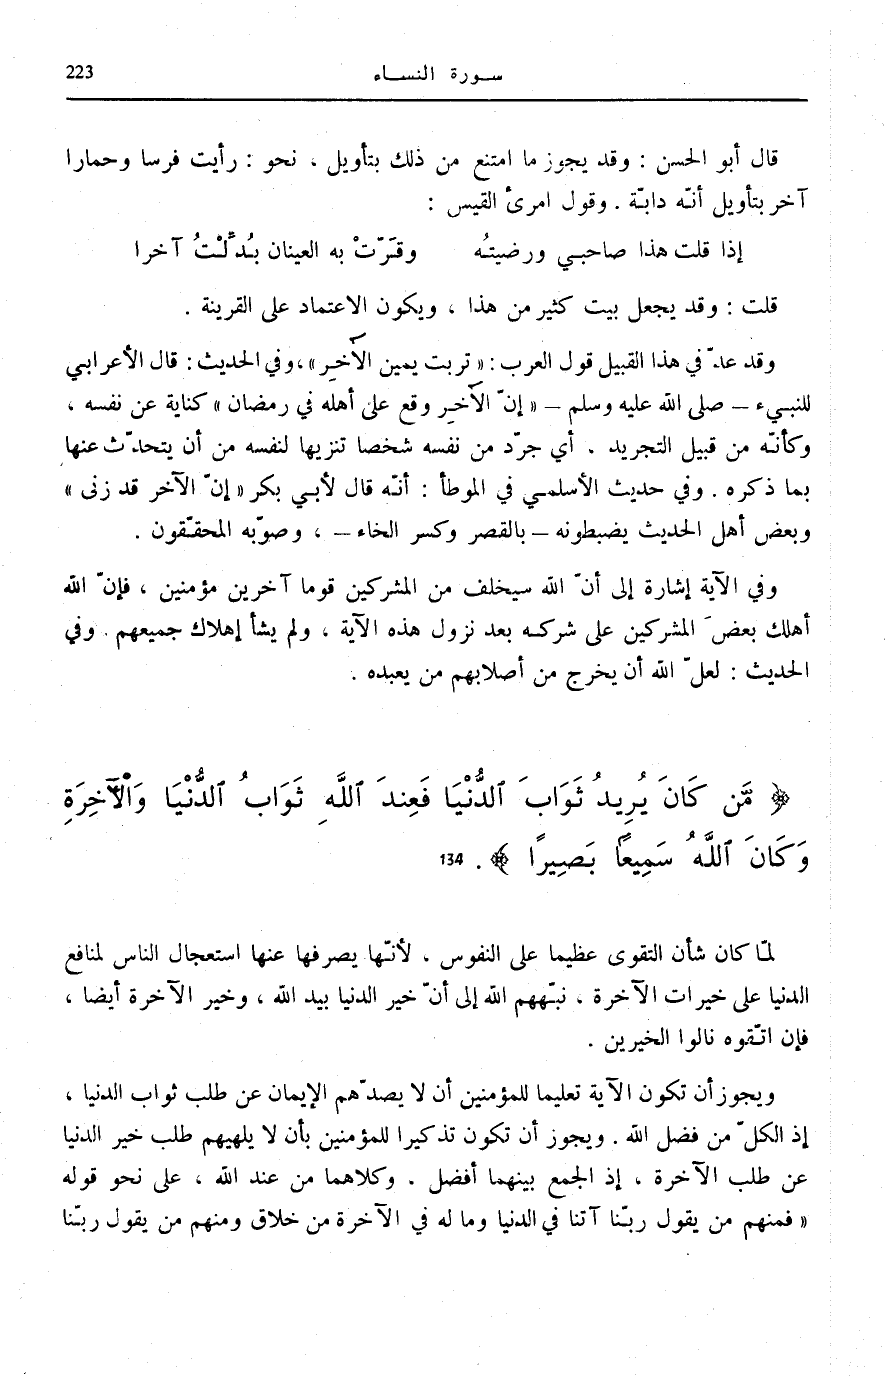 سورة النساء 223
قال أبو الحسن : وقد يجوز ما امتنع من ذلك بتأويل ، نحو : رأيت فرسا وحمارا
آخر بتأويل أنّه دابّة . وقول امرئ القيس :
إذا قلت هذا صاحبي ورضيتُه وقَرّتْ به العينان بُدّلْتُ آخرا
قلت : وقد يجعل بيت كثير من هذا ، ويكون الاعتماد على القرينة .
وقد عدّ في هذا القبيل قول العرب : « تربت يمين الآخِر » ، وفي الحديث : قال الأعرابي
للنبيء – صلى الله عليه وسلم – « إنّ الآخِر وقع على أهله في رمضان » كناية عن نفسه ،
وكأنّه من قبيل التجريد . أي جرّد من نفسه شخصا تنزيها لنفسه من أن يتحدّث عنها
بما ذكره . وفي حديث الأسلمي في الموطأ : أنّه قال لأبي بكر « إنّ الآخر قد زنى »
وبعض أهل الحديث يضبطونه – بالقصر وكسر الخاء – ، وصوّبه المحقّقون .
وفي الآية إشارة إلى أنّ الله سيخلف من المشركين قوما آخرين مؤمنين ، فإنّ الله
أهلك بعضَ المشركين على شركه بعد نزول هذه الآية ، ولم يشأ إهلاك جميعهم . وفي
الحديث : لعلّ الله أن يخرج من أصلابهم من يعبده .
﴿ مَّن كَانَ يُرِيدُ ثَوَابَ ٱلدُّنْيَا فَعِندَ ٱللَّهِ ثَوَابُ ٱلدُّنْيَا وَٱلْأَخِرَةِ
وَكَانَ ٱللَّهُ سَمِيعًا بَصِيرًا ﴾ . 134
لمّا كان شأن التقوى عظيما على النفوس ، لأنّها يصرفها عنها استعجال الناس لمنافع
الدنيا على خيرات الآخرة ، نبّههم الله إلى أنّ خير الدنيا بيد الله ، وخير الآخرة أيضا ،
فإن اتّقوه نالوا الخيرين .
ويجوز أن تكون الآية تعليما للمؤمنين أن لا يصدّهم الإيمان عن طلب ثواب الدنيا ،
إذ الكلّ من فضل الله . ويجوز أن تكون تذكيرا للمؤمنين بأن لا يلهيهم طلب خير الدنيا
عن طلب الآخرة ، إذ الجمع بينهما أفضل . وكلاهما من عند الله ، على نحو قوله
« فمنهم من يقول ربّنا آتنا في الدنيا وما له في الآخرة من خلاق ومنهم من يقول ربّنا